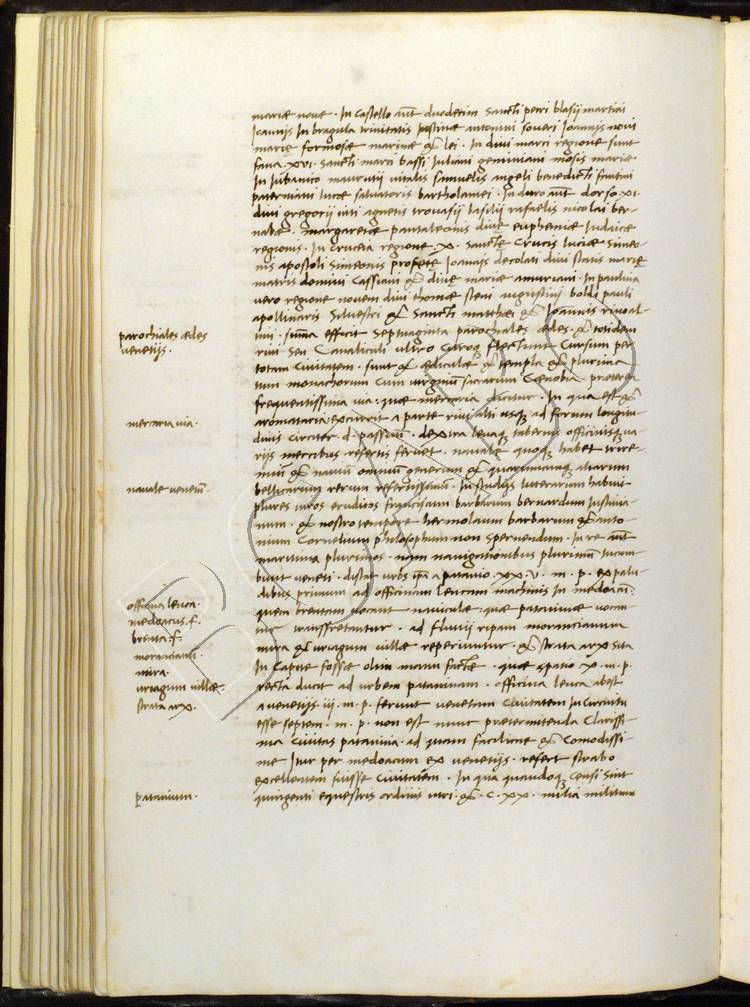 mariæ novæ. In castello aut duodecim Sancti petri blasij martini
Ioannis In bragula trinitatis Iustinæ antonini soveri Ioannis novi
marię formosæ marinæ & lei. In divi marci regione sunt
fana .XVI. Sancti marci bassi Iuliani geminiani moisis mariæ
In Iubanico mauritii vitalis samuelis angeli benedicti fantini
paterniani lucæ salvatoris bartholamei. In duro aut dorso .XI.
divi gregorii viti agnetis trovasij basilij rafaelis nicolai ber-
nabæ. margaretæ pantaleonis divæ euphemiæ Iudaicæ
regionis. In cruceia regione .X. Sanctę Crucis luciæ Simeo-
nis apostoli Simeonis profetę Ioannis decolati divi statis marię
matris domini Cassiani & divę mariæ anuriani. In paulina
vero regione novem divi thomæ steni augustini boldi pauli
apollinaris Silvestri & Sancti matthæi & Ioannis rivoal-
tini. summa efficit Septuaginta parochiales ædes. & totidem
rivi seu Canaliculi ultro citroq flectunt Cursum per
totam civitatem. sunt & ædiculæ & templa & plurima
tum monachorum cum virginum sacrarum Cœnobia præterea
frequentissima via. quæ merceria dicitur. In qua est &
aromataria excurrit a parte rivi alti usq ad forum longitu-
dinis circiter .d. passuum. dextra levaq tabernis officinisq va-
rijs mercibus refertis fervet. navale quoq habet trire-
mium & navium omnium generum & quarumcunq aliarum
bellicarum rerum refertissimum. In studijs litterarum habuit
plures viros eruditos franciscum barbarum bernardum Iustinia-
num. & nostro tempore hermolaum barbarum & anto-
nium Cornelium philosophum non spernendum. In re aut
maritima plurimos. nam navigationibus plurimum incum-
bunt veneti. distat urbs ipsa a patavio .XX.V. m. p. ex palu-
dibus primum ad officinam leucam machinis in medoacum
quem brentam vocant naviculæ quæ patavinæ vocan-
tur transfretantur. ad fluvii ripam moranciannum
mira & uriagum villæ reperiuntur. & strata arx sita
In Capite fossæ olim manu factæ. quæ spatio X. m. p.
recta ducit ad urbem patavinam. officina leuca abest
a venetijs .iij. m. p. ferunt venetam Civitatem In circuitu
esse septem. m. p. non est nunc prætermittenda Clarissi-
ma civitas patavina. ad quam facilime & Comodissi-
me Itur per medoacum ex venetijs. refert strabo
excellentem fuisse civitatem. In qua quandoq censi sint
quingenti equestris ordinis viri. & .C.XX. milia militum
parochiales ædes
venetijs.
merceria via.
navale venetum.
officina leuca.
medoacus .f.
brenta .f.
moranciani.
mira.
uriagum villæ.
strata arx.
patavium.
BSMP